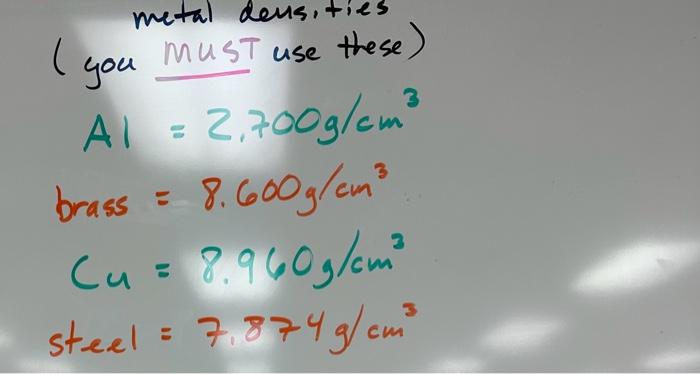 metal densities
(you MUST use these)
Al = 2.700g/cm³
brass = 8.600g/cm³
Cu = 8.960g/cm³
steel = 7.874g/cm³